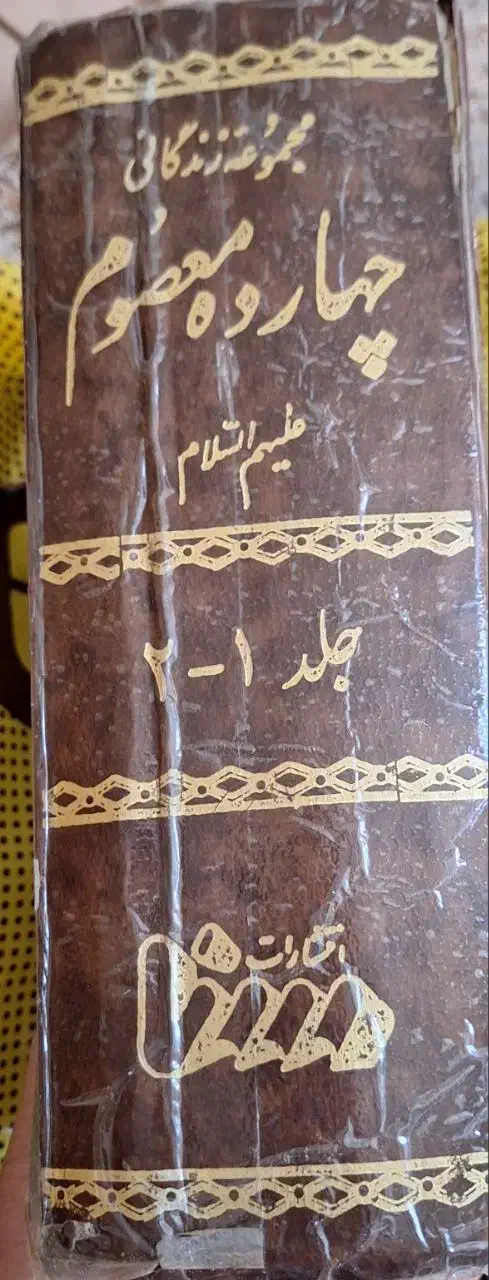 مجموعه زندگانی
چهارده معصوم
علیهم السلام
جلد ۱-۲
انتشارات